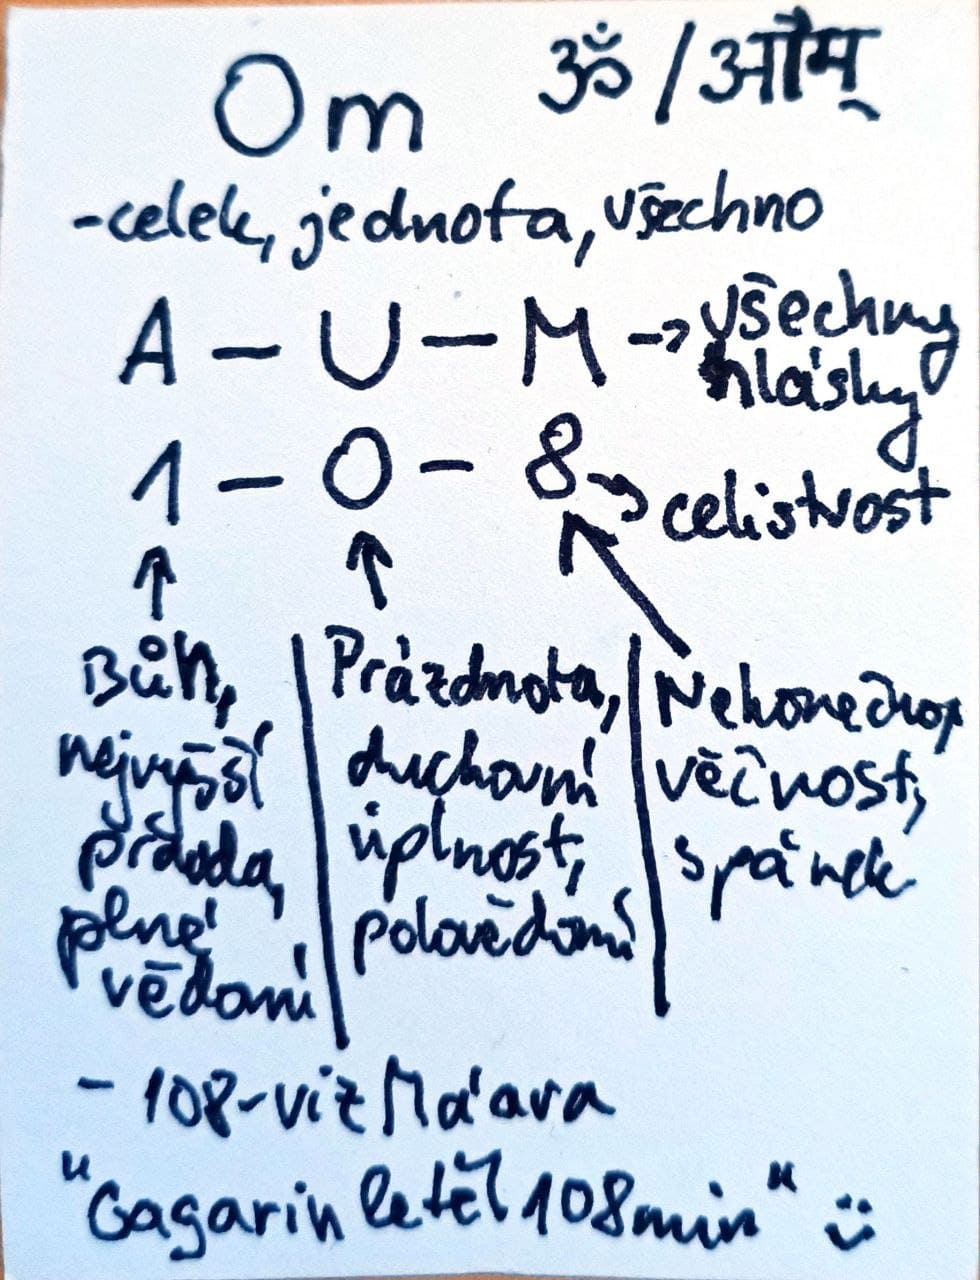 Om ॐ / ओम्
-celek, jednota, všechno
A – U – M → všechny
hlásky
1 – 0 – 8 → celistvost
↑ ↑
Bůh,
nejvyšší
příroda,
plné
vědomí
Prázdnota,
duchovní
úplnost,
polovědomí
Nekonečno,
věčnost,
spánek
- 108-viz Má'ara
"Gagarin letěl 108min" :)